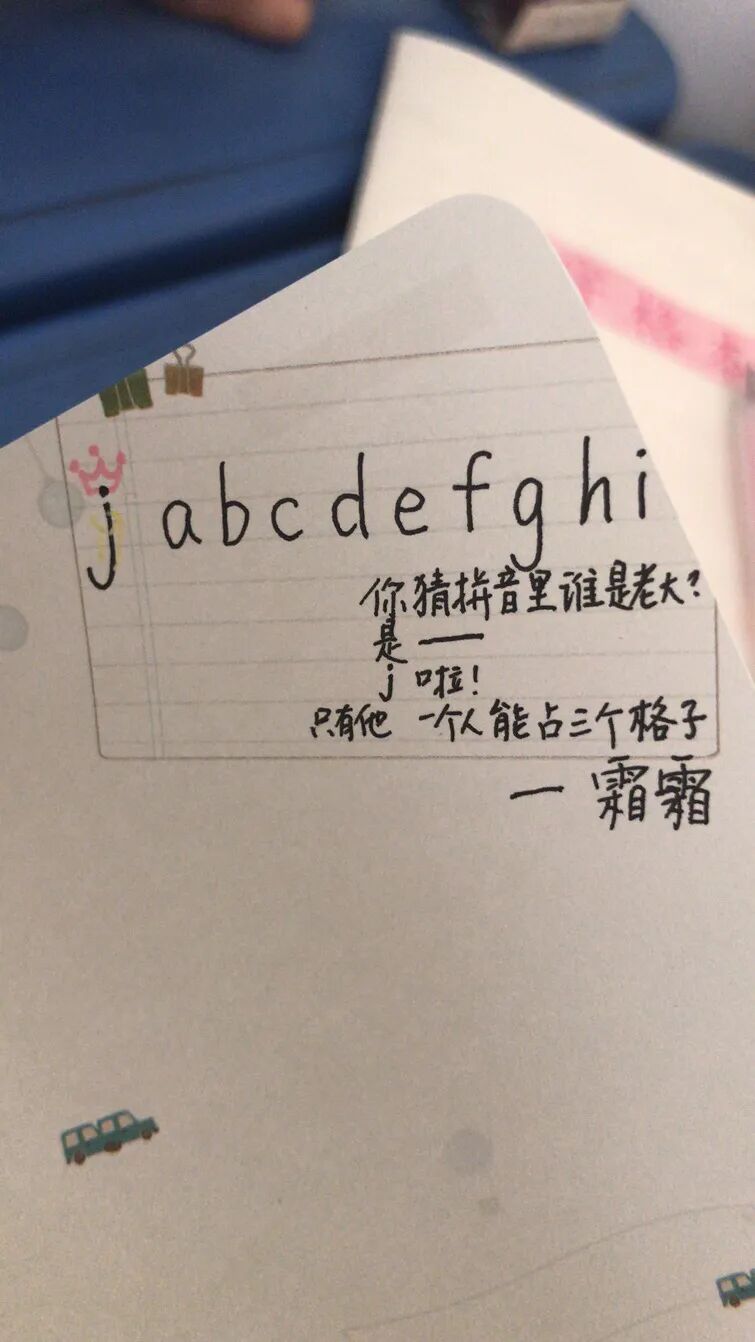 j a b c d e f g h i
你猜拼音里谁是老大?
是——
j 啦!
只有他 一个人能占三个格子
— 霜霜